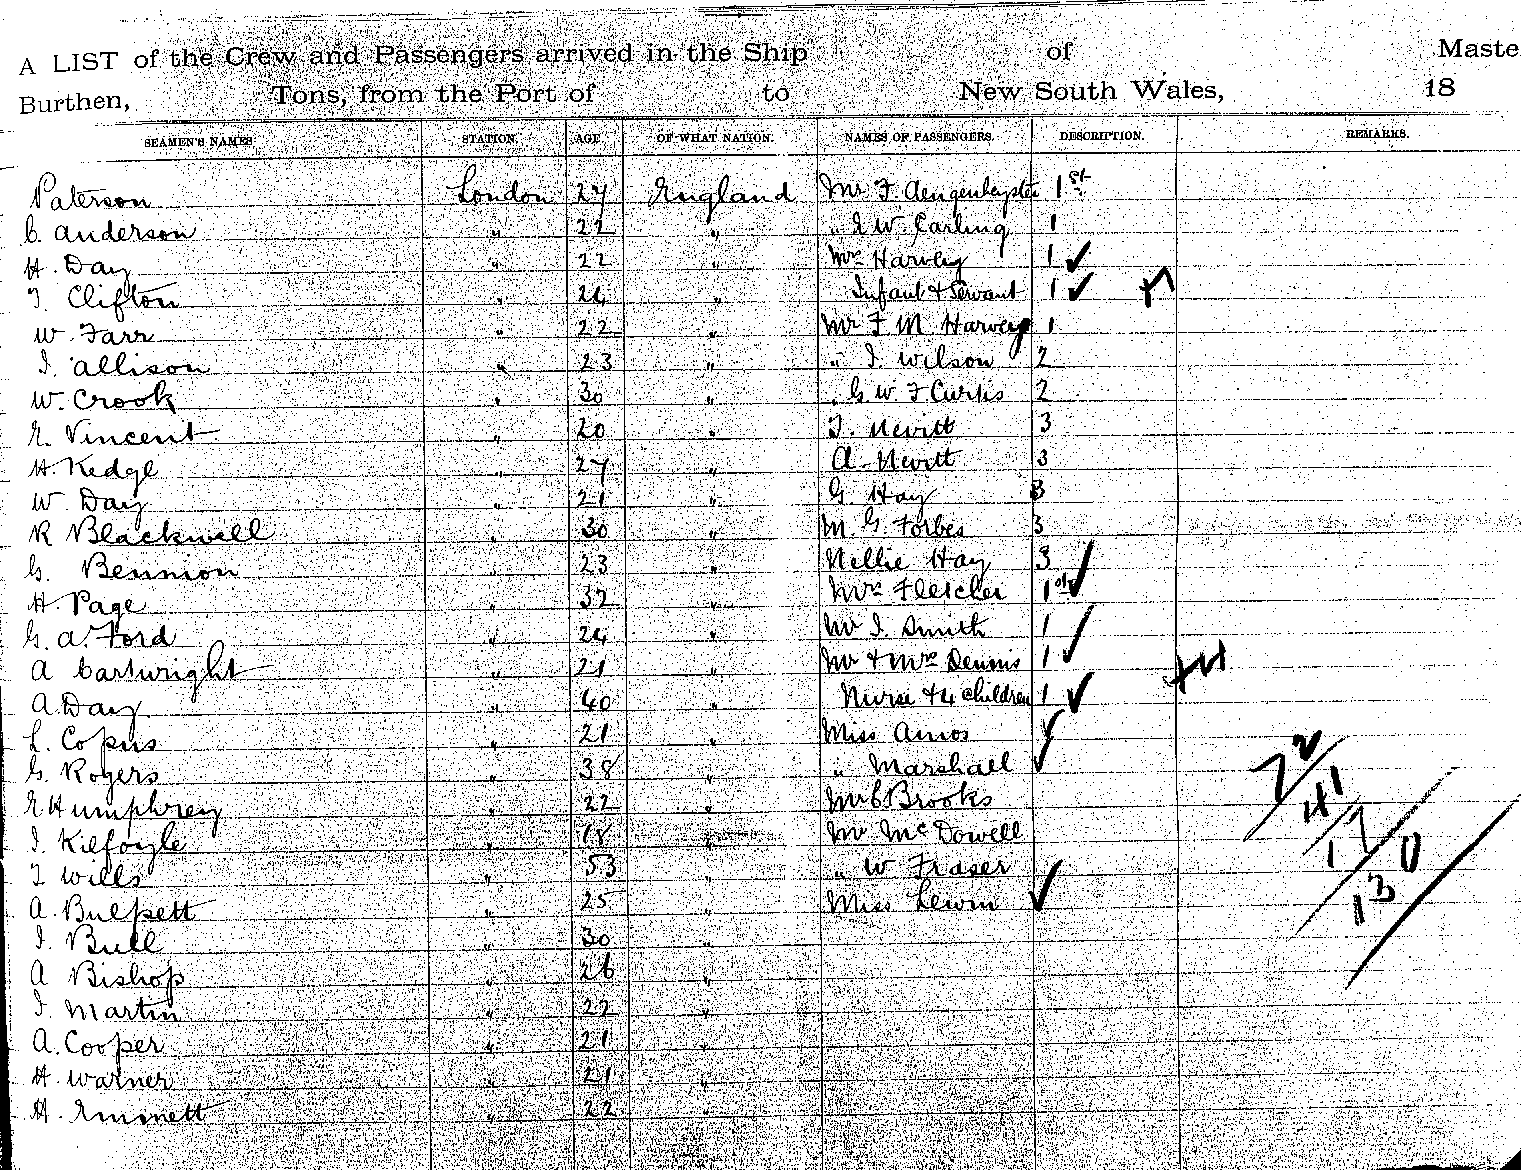 A LIST of the Crew and Passengers arrived in the Ship of Maste
Burthen, Tons, from the Port of to New South Wales, 18
SEAMEN'S NAMES STATION. AGE OF WHAT NATION. NAMES OF PASSENGERS. DESCRIPTION. REMARKS.
Paterson London 27 England Mr F. 1st
C. Anderson " 22 " " I W. Carling 1
H. Day " 22 " Mrs Harvey 1 ✓
T. Clifton " 24 " Infant & Servant 1 ✓
W. Farr " 22 " Mr F M Harvey 1
I. Allison " 23 " " I. Wilson 2
W. Crook " 30 " " G W F Curtis 2
E. Vincent " 20 " T. Nevitt 3
H. Kedge " 27 " A. Nevitt 3
W Day " 21 " G Hay 3
R Blackwell " 30 " M. G Forbes 3
G. Bennion " 23 " Nellie Hay 3 ✓
H. Page " 32 " Mrs Fletcher 1st ✓
G. A. Ford " 24 " Mr I. Smith 1
A Cartwright " 21 " Mr & Mrs Dennis 1 ✓
A. Day " 40 " Nurse & 4 children 1 ✓
L. Copus " 21 " Miss Amos ✓
G. Rogers " 38 " " Marshall ✓
E Humphrey " 22 " Mr C. Brooks 72
I. Kilfoyle " 18 " Mr McDowell 41
T Wills " 53 " " W Fraser 17
A. Bulpett " 25 " Miss Lewin ✓ 130
I. Bull " 30 "
A Bishop " 26 "
I. Martin " 22 "
A. Cooper " 21 "
H. Warner " 21 "
H. Emmett " 22 "